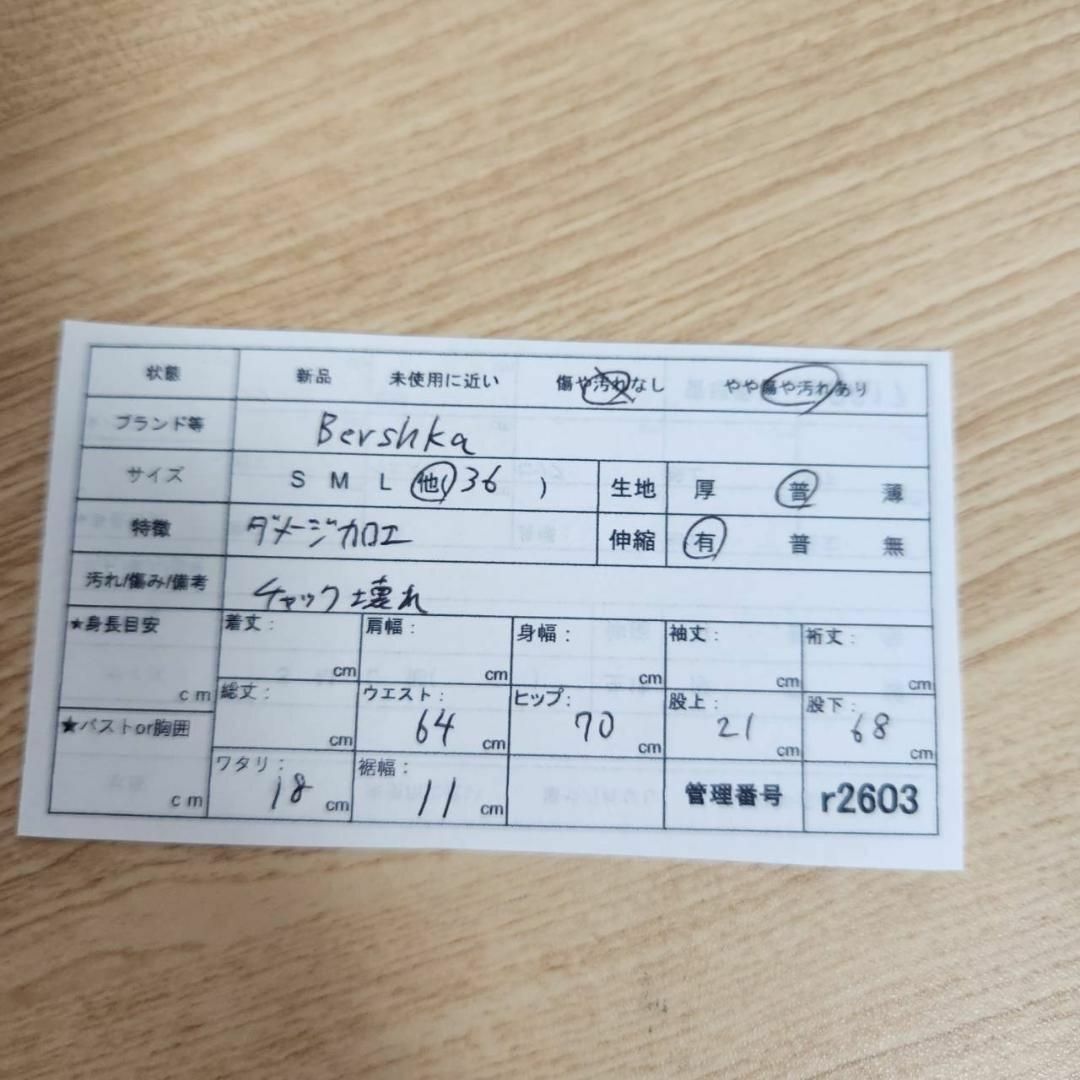 状態 新品 未使用に近い 傷や汚れなし やや傷や汚れあり
ブランド等 Bershka
サイズ S M L 他( 36 ) 生地 厚 普 薄
特徴 ダメージカロエ 伸縮 有 普 無
汚れ/傷み/備考 チャック壊れ
★身長目安 cm 着丈: cm 肩幅: cm 身幅: cm 袖丈: cm 裄丈: cm
総丈: cm ウエスト: 64 cm ヒップ: 70 cm 股上: 21 cm 股下: 68 cm
★バストor胸囲 cm ワタリ: 18 cm 裾幅: 11 cm 管理番号 r2603